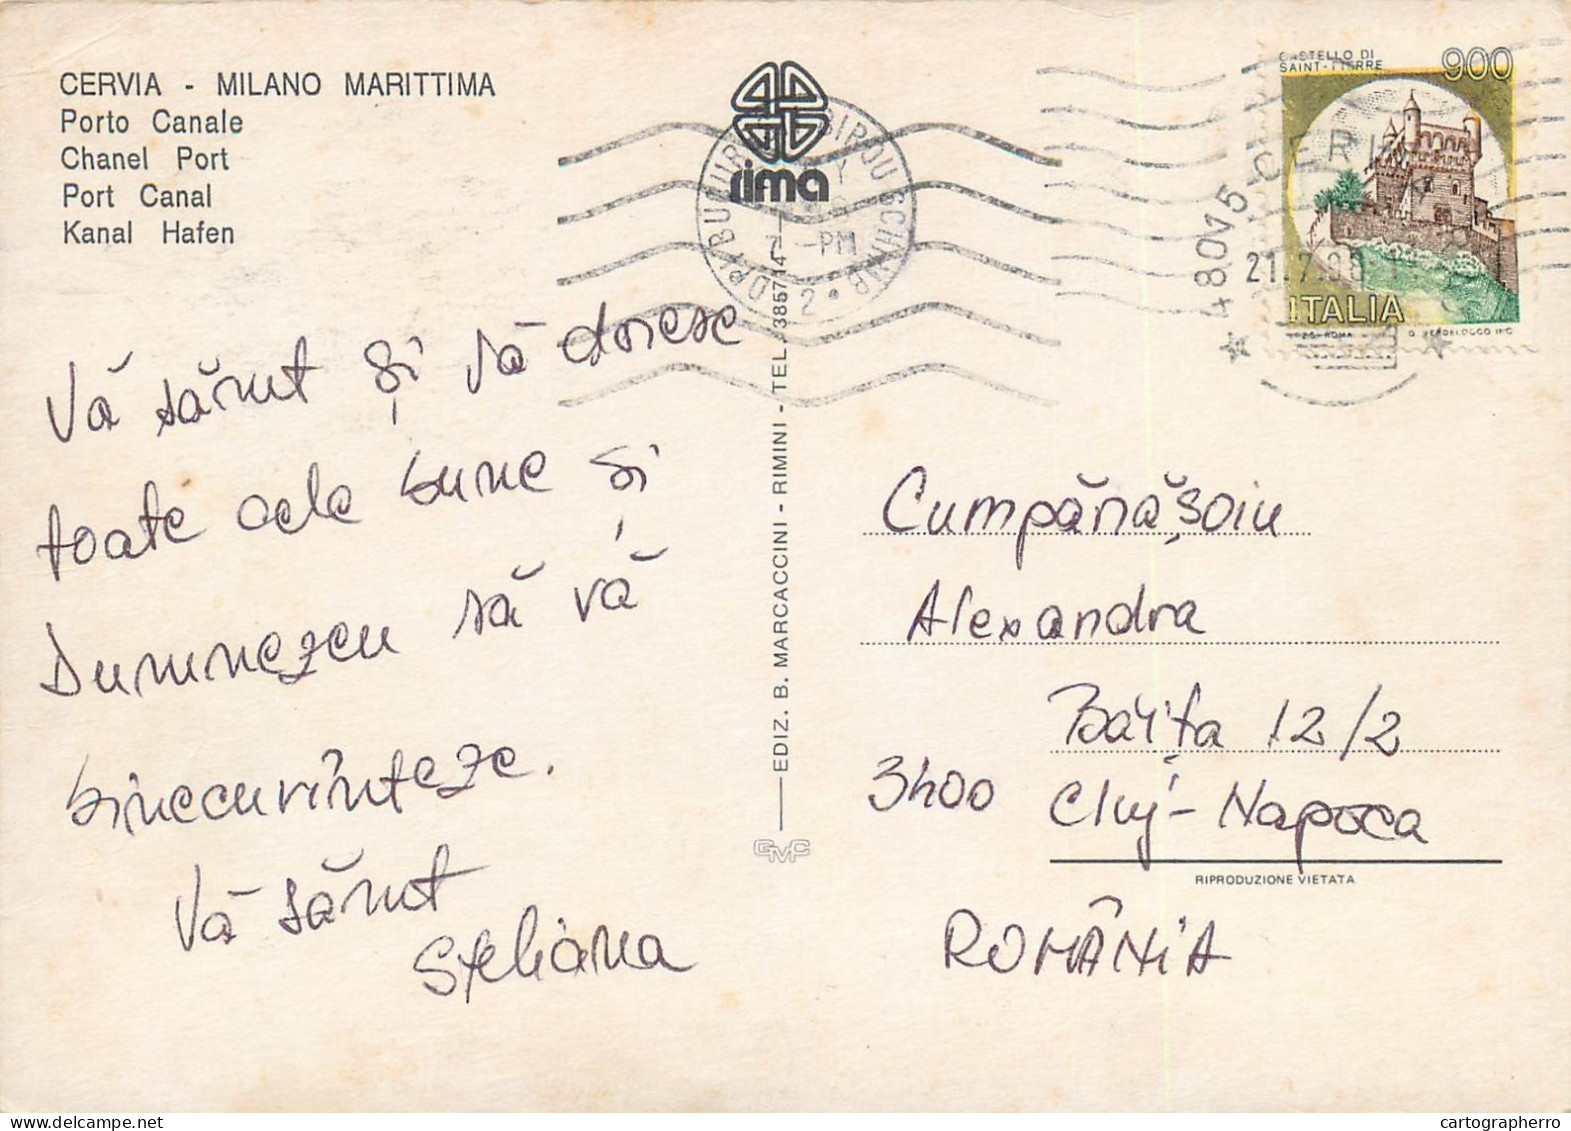 CERVIA - MILANO MARITTIMA
Porto Canale
Chanel Port
Port Canal
Kanal Hafen
rima
CASTELLO DI
SAINT-PIERRE
900
48015 CERVIA
21.7.98
ITALIA
I.P.Z.S. - ROMA
PM
2
Vă sărut și vă doresc
toate cele bune și
Dumnezeu să vă
binecuvînteze.
Vă sărut
Steliana
EDIZ. B. MARCACCINI - RIMINI - TEL. 385714
GMC
Cumpănășoiu
Alexandra
Băița 12/2
3400 Cluj-Napoca
RIPRODUZIONE VIETATA
ROMÂNIA
cartographerro